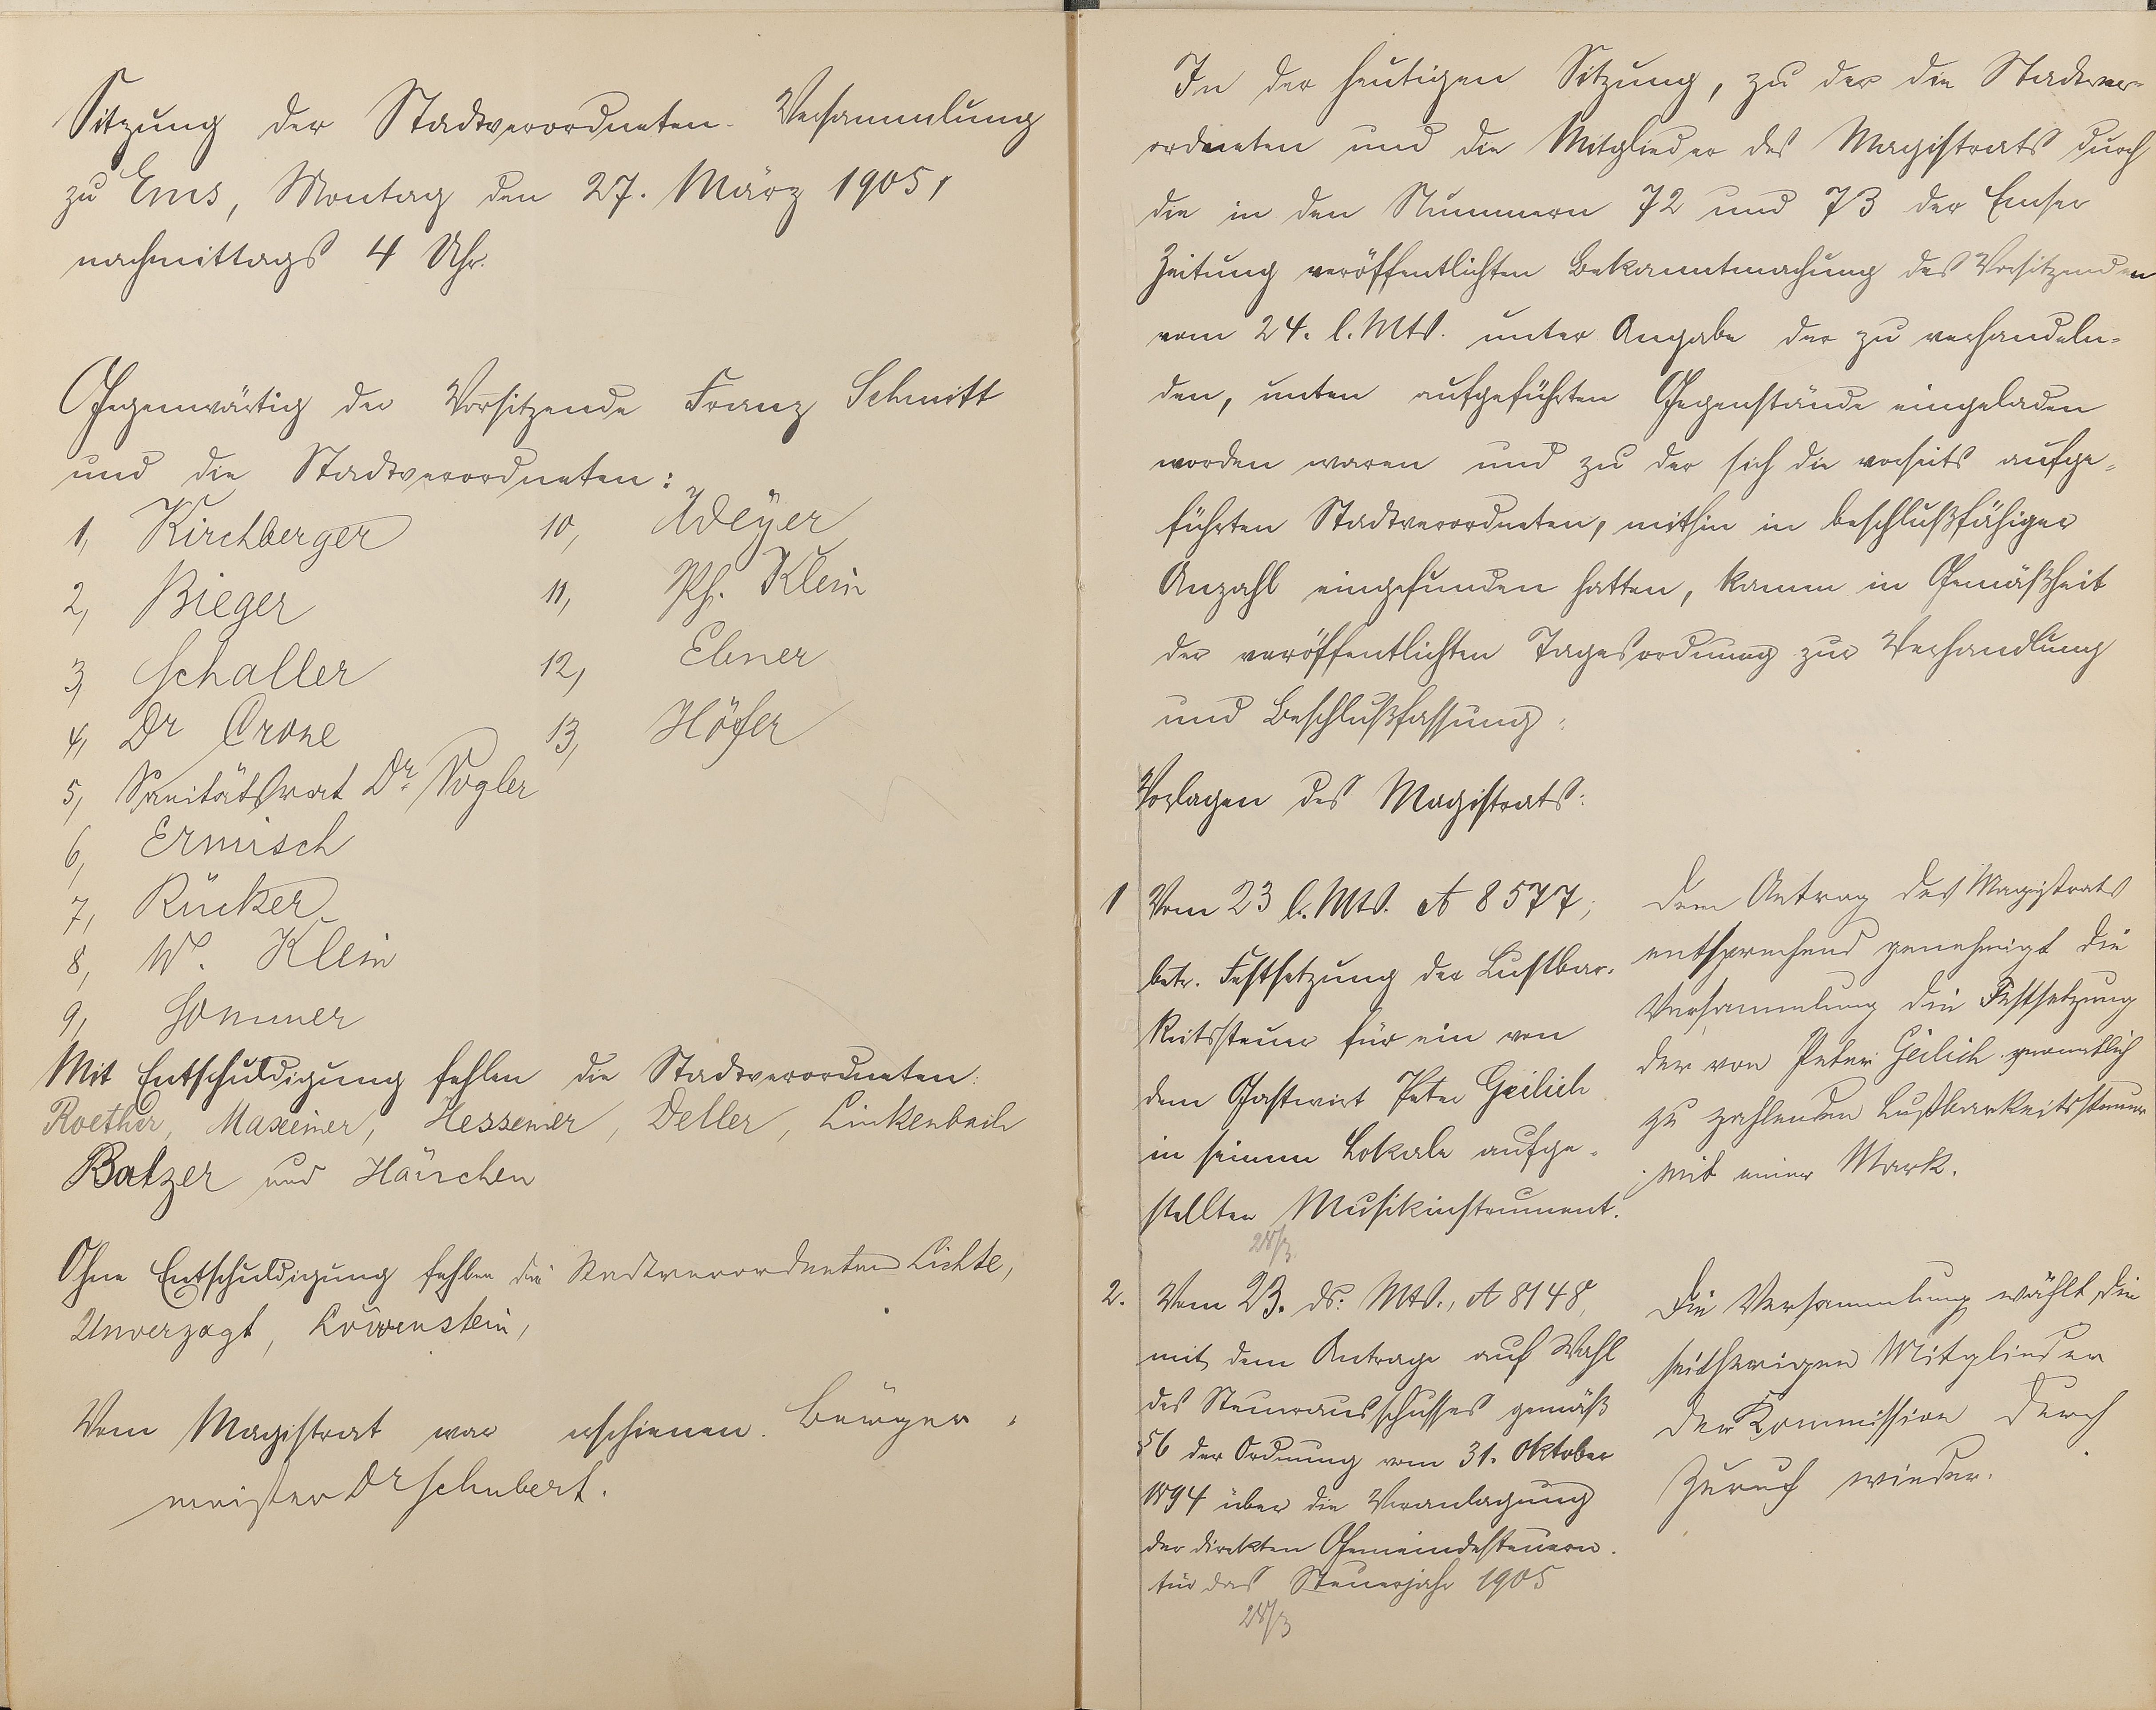 Sitzung der Stadtverordneten-Versammlung
zu Ems, Montag den 27. März 1905,
nachmittags 4 Uhr.
Gegenwärtig der Vorsitzende Franz Schmitt
und die Stadtverordneten:
1, Kirchberger
2, Bieger
3, Schaller
4, Dr Crone
5, Sanitätsrat Dr. Vogler
6, Ermisch
7, Rücker
8, W. Klein
9, Sommer
10, Weyer
11, Ph. Klein
12, Ebner
13, Höfer
Mit Entschuldigung fehlen die Stadtverordneten:
Roether, Maxeiner, Hessemer, Deller, Linkenbach
Batzer und Häuschen
Ohne Entschuldigung fehlen die Stadtverordneten Lichte,
Unverzagt, Löwenstein,
Vom Magistrat war erschienen. Bürger-
meister Dr Schubert.
In der heutigen Sitzung, zu der die Stadtver-
ordneten und die Mitglieder des Magistrats durch
die in den Nummern 72 und 73 der Emser
Zeitung veröffentlichten Bekanntmachung des Vorsitzenden
vom 24. l. Mts. unter Angabe der zu verhandeln-
den, unten aufgeführten Gegenstände eingeladen
worden waren und zu der sich die vorseits aufge-
führten Stadtverordneten, mithin in beschlußfähiger
Anzahl eingefunden hatten, kamen in Gemäßheit
der veröffentlichten Tagesordnung zur Verhandlung
und Beschlußfassung:
Vorlagen des Magistrats:
1 Vom 23 l. Mts. A 8577;
betr. Festsetzung der Lustbar-
keitssteuer für ein von
dem Gastwirt Peter Geilich
in seinem Lokale aufge-
stellten Musikinstrument.
28/3
Dem Antrag des Magistrats
entsprechend genehmigt die
Versammlung die Festsetzung
der von Peter Geilich monatlich
zu zahlenden Lustbarkeitssteuer
mit einer Mark.
2. Vom 23. ds. Mts., A 8148,
mit dem Antrage auf Wahl
des Steuerausschusses gemäß
§6 der Ordnung vom 31. Oktober
1894 über die Veranlagung
der direkten Gemeindesteuern.
für das Steuerjahr 1905
28/3
Die Versammlung wählt die
seitherigen Mitglieder
der Kommission durch
Zuruf wieder.